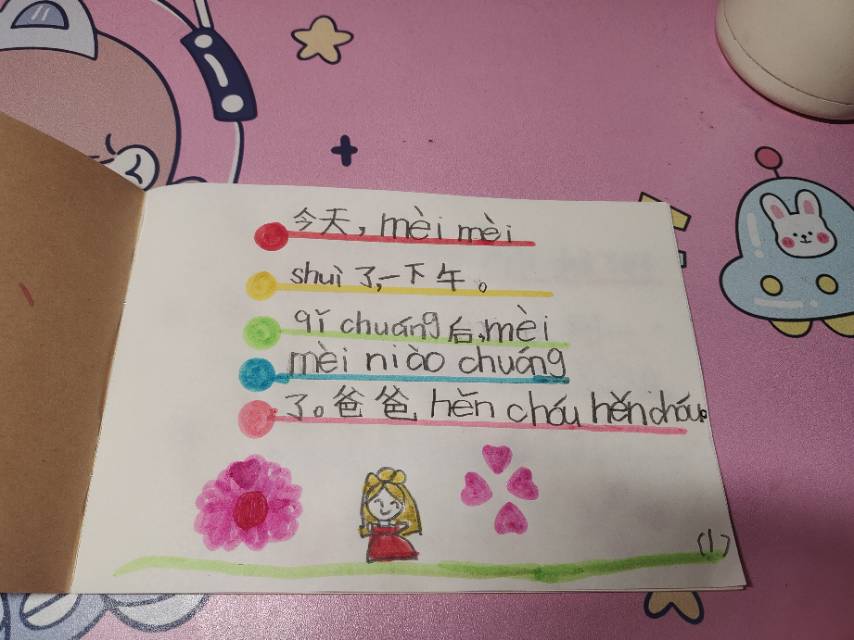 今天，mèi mèi
shuì了，一下午。
qǐ chuáng后，mèi
mèi niào chuáng
了。爸爸，hěn cháu hěn cháu。
(1)